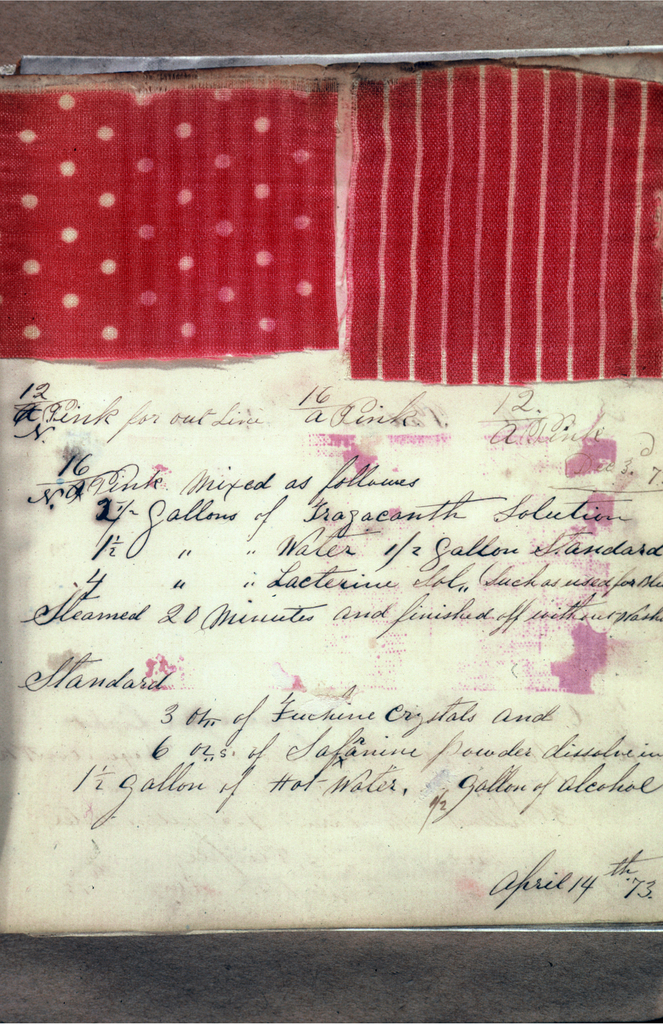 12 A Pink for out Line 16 A Pink 12. A Pink
N.
Dec 3. 7
16 A Pink Mixed as followes
N.
2 1/2 Gallons of Tragacanth Solution
1 1/2 " " Water 1/2 Gallon Standard
4 " " Lacterine Sol,, (Such as used for
Steamed 20 Minutes and finished off without
Standard
3 of Fuchine Crystals and
6 ozs. of Safanine powder dissolve in
1 1/2 gallon of Hot Water. 1/2 gallon of alcohol
April 14th 73.